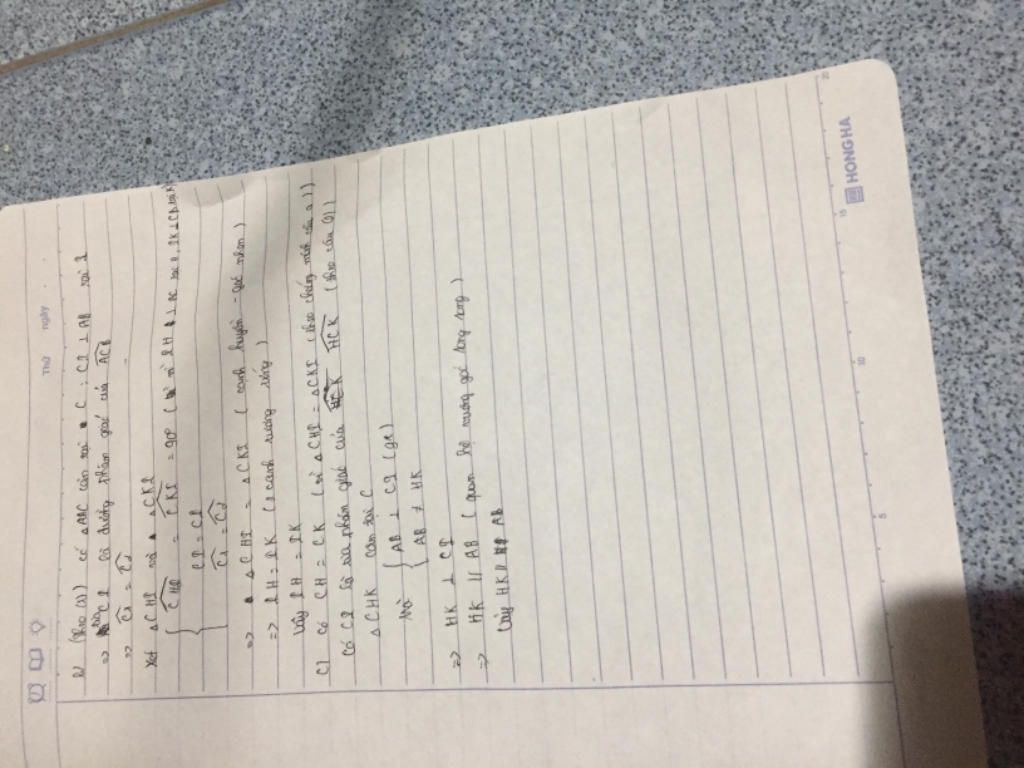 Thứ ngày
b) (theo (a)) có △ABC cân tại C ; CI ⊥ AB tại I
=> CI là đường phân giác của ACB
=> C1 = C2
Xét △CHI và △CKI
CHI = CKI = 90° ( vì IH ⊥ AC tại H, IK ⊥ CB tại K)
CI = CI
C1 = C2
=> △CHI = △CKI ( cạnh huyền - góc nhọn )
=> IH = IK ( 2 cạnh tương ứng )
Vậy IH = IK
c) Có CH = CK ( vì △CHI = △CKI ( theo chứng minh câu a ))
Có CI là tia phân giác của HCK (theo câu (a))
△CHK cân tại C
Mà AB ⊥ CI (gt)
AB ≠ HK
=> HK ⊥ CI
=> HK // AB ( quan hệ vuông góc song song )
Vậy HK // AB
5
10
15
20
HONG HA